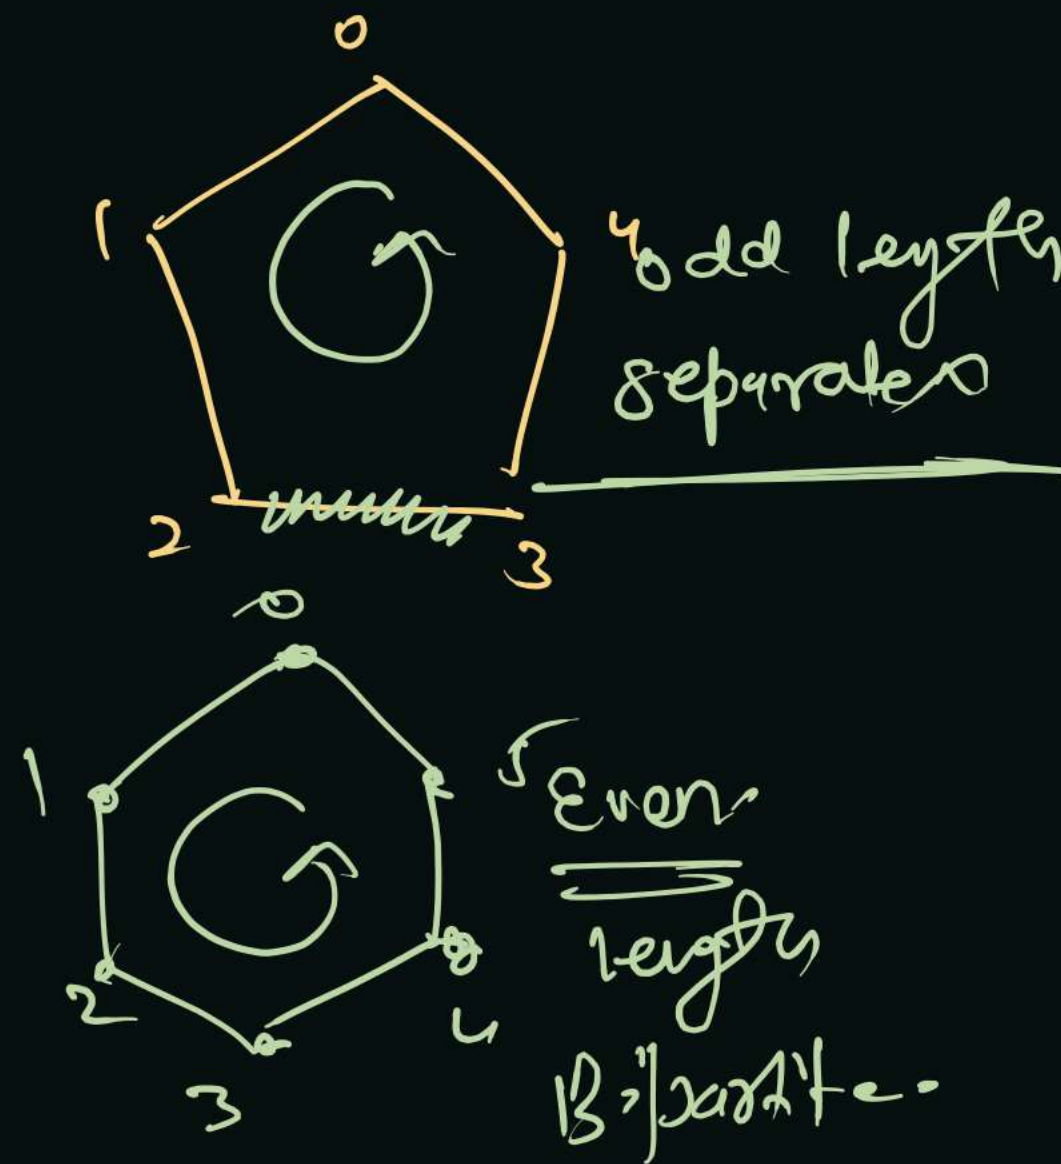 0
1
4
odd length
separates
2
3
0
1
5
Even
length
2
4
3
Bipartite.